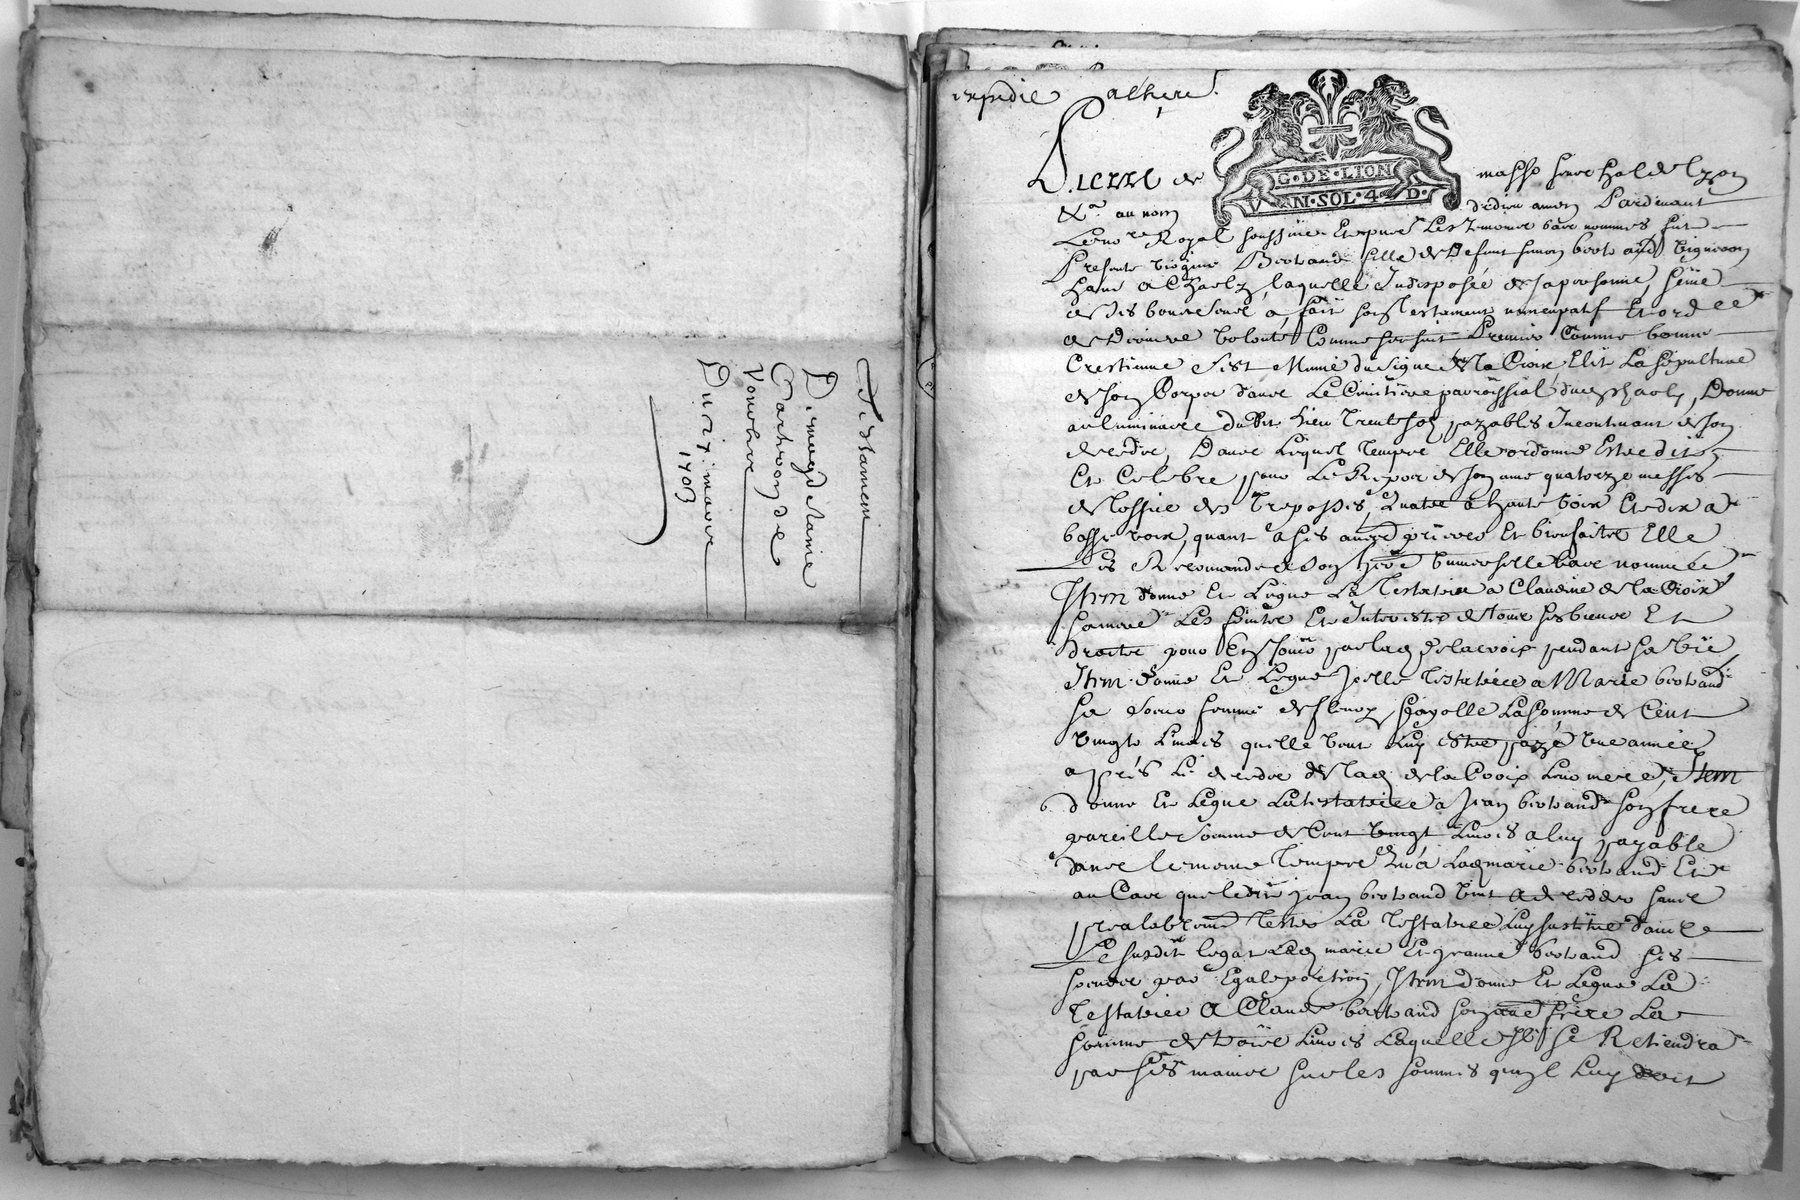 Testament
De
Du 1703
expedie
G·DE·LION
VN·SOL·4·D·
Pierre de masso senechal de Lyon
&c. au nom de dieu amen Pardevant
Le no.re Royal soussigné Et en pnce Les temoins bas nommés fut
Presente Bertrand fille de Defunt simon bertrand vigneron
laquelle Indisposée de sa personne, seine
de ses bons sens a, fait son testament nuncupatif Et ordce
de Derniere volonté Comme sensuit Premier Comme bonne
Crestienne s'est Munie du signe de la Croix Elit La sépulture
de son Corps dans Le Cimitiere parroissial, Donne
au luminaire dudit Lieu Trente sols payables Incontinant de son
decedée, Dans Lequel temps Elle ordonne Estre dites
Et Celebre pour Le Repos de son ame quatorze messes
de loffice des Trepassés, quatre a haute voix Et dix a
basse voix, quant a ses autres prieres Et bienfaites Elle
Les Recomande a son here universelle bas nommée
Item donne Et Legue La Testatrice a Claudine de la Croix
sa mere Les fruits Et Interests de tous ses biens Et
droits pour En Jouir par lad. delacroix pendant sa vie
Item donne Et Legue Icelle testatrice a Marie bertrand
sa soeur femme de fleury Gayolle La somme de Cent
vingts Livres quelle veut Luy estre payé une année
apprés Le decedée de lad. de la Croix Leur mere, Item
donne Et Legue La testatrice a Jean bertrand son frere
pareille somme de Cent vingt Livres a luy payable
dans le meme temps qua Lad. marie bertrand Et
au Cas que ledit Jean bertrand vint a deceder sans
prealablement tester La testatrice Luy substitue dans
Le susdit legat Lad. marie Et jeanne bertrand ses
soeurs par Egale portion, Item donne Et Legue La
Testatrice A Claude bertrand son autre frere La
somme de trois Livres Laquelle Il se Retiendra
par ses mains sur les sommes quil Luy doit